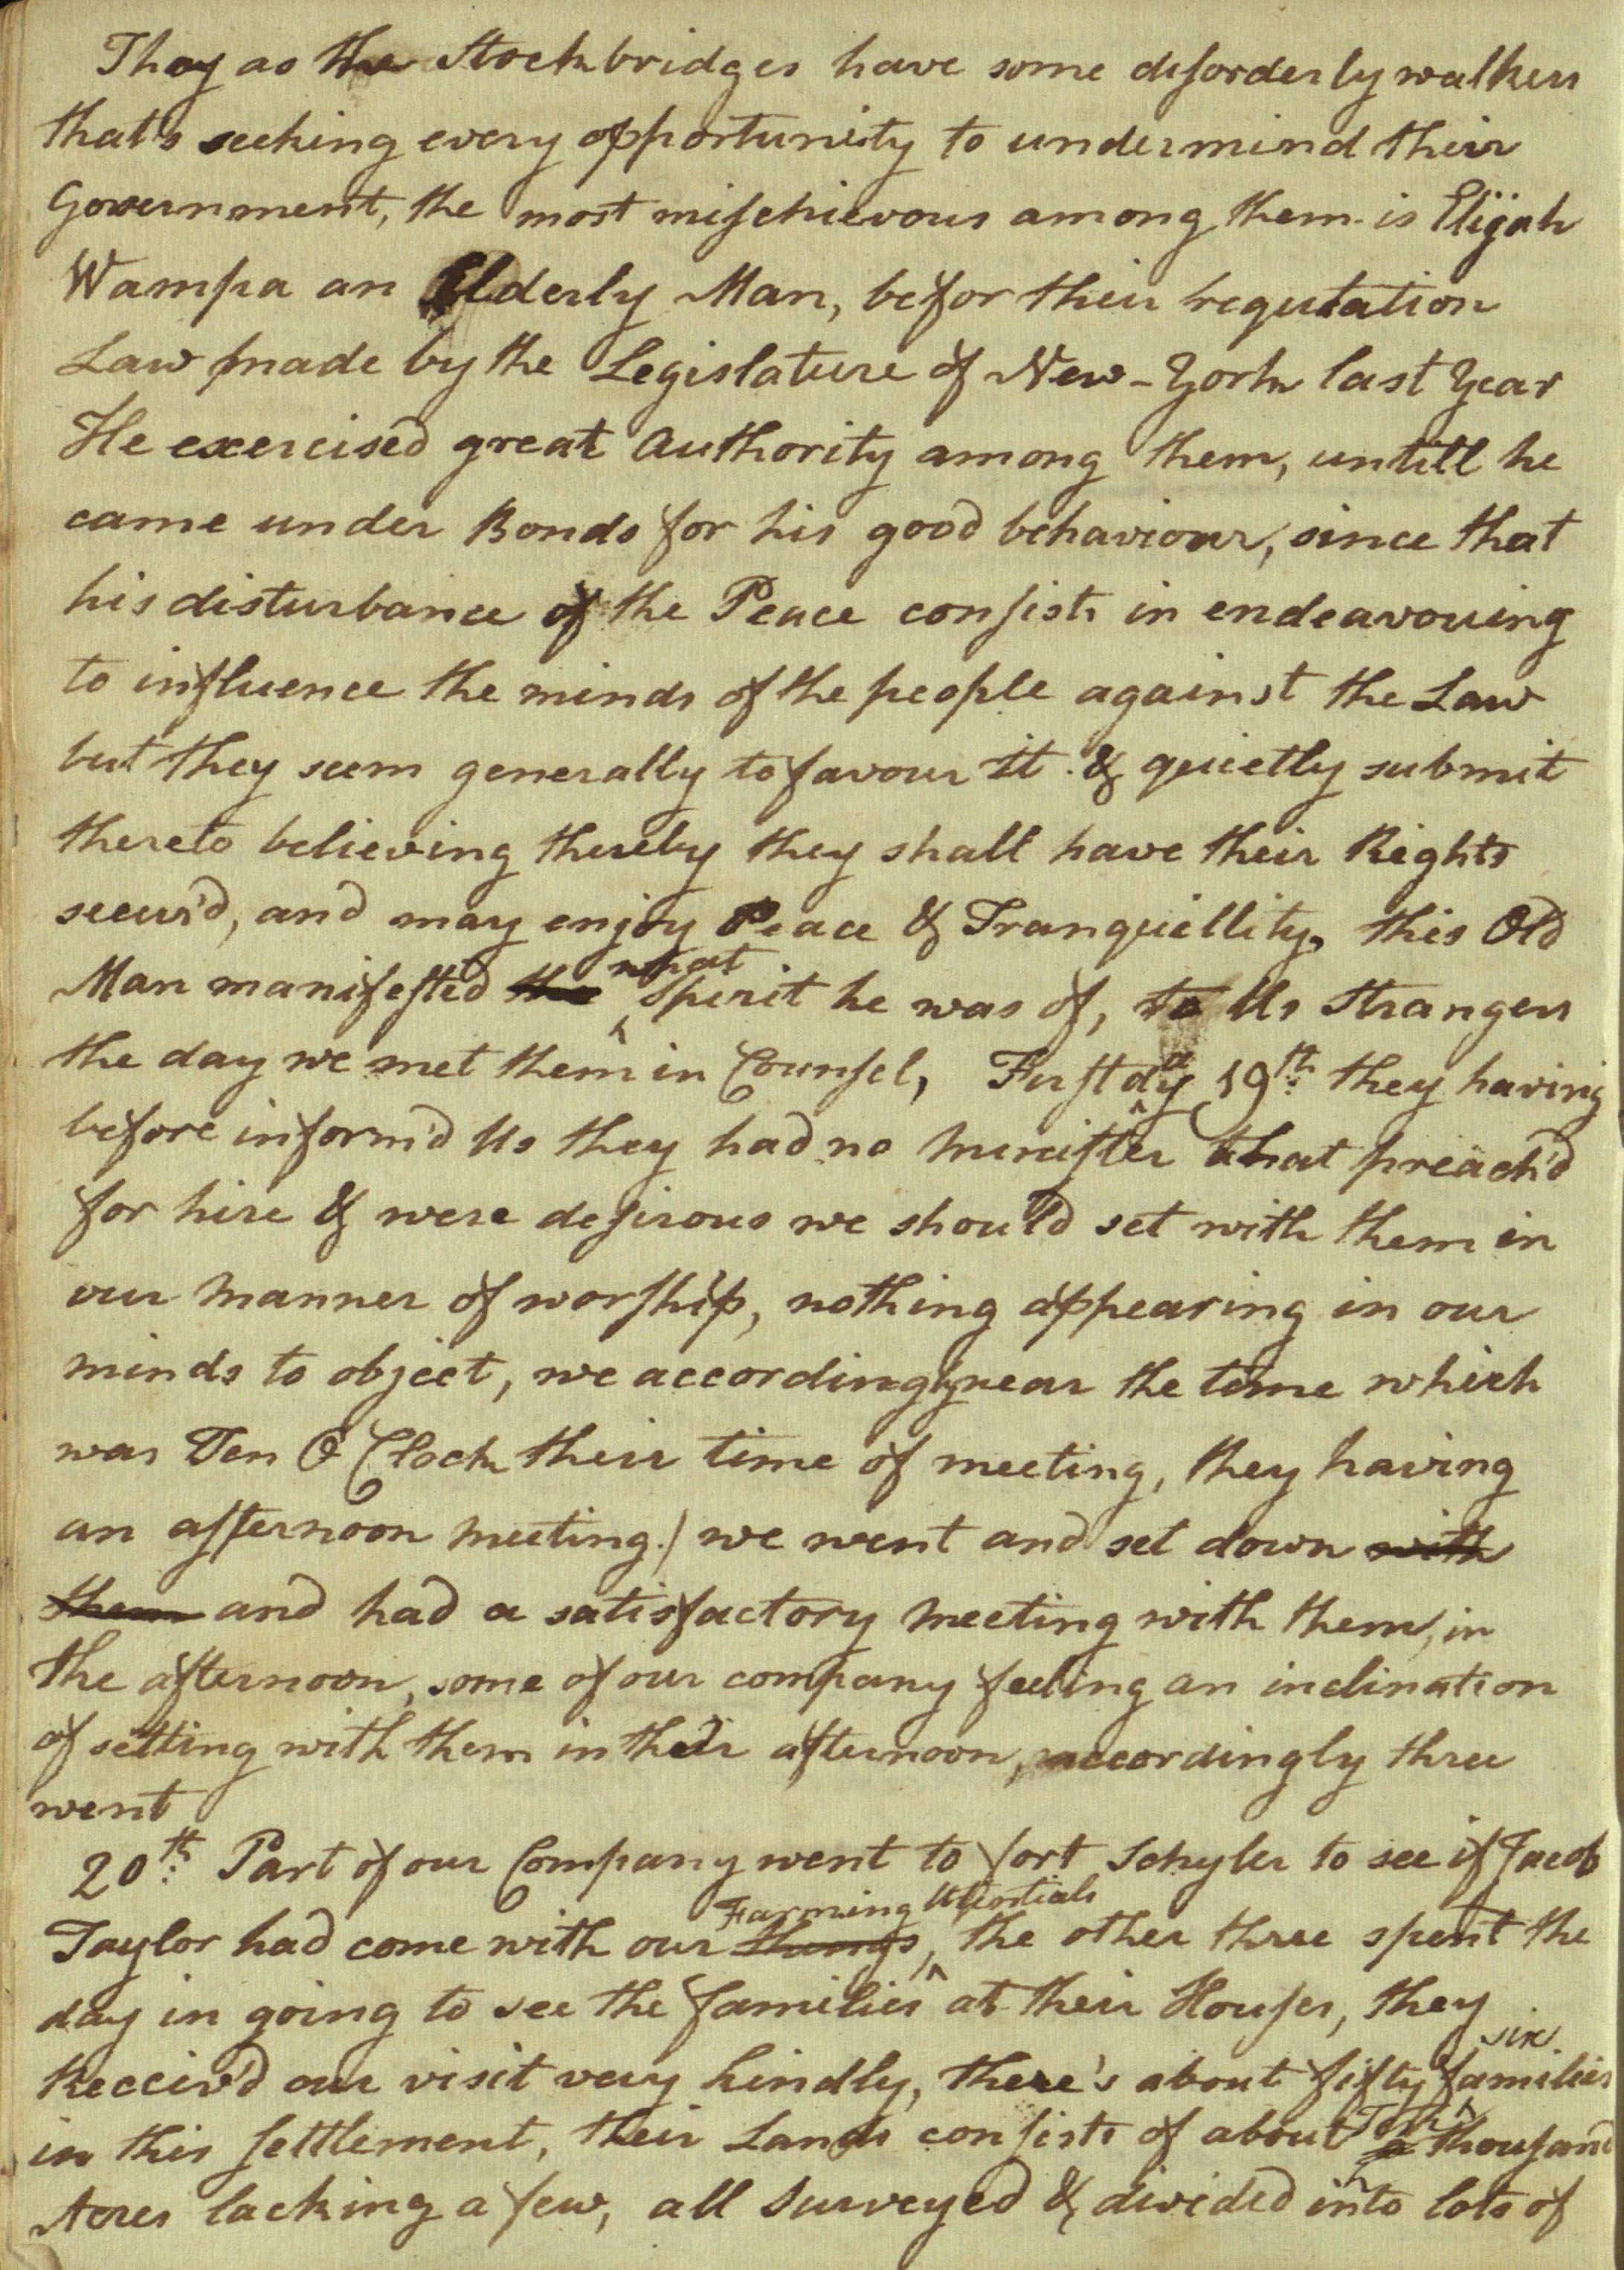 They as the Stockbridges have some disorderly walkers
that's seeking every opportunity to undermind their
Government, the most mischievous among them is Elijah
Wampa an Elderly Man, befor their regulation
Law made by the Legislature of New-York last Year
He exercised great Authority among them, untill he
came under Bonds for his good behaviour, since that
his disturbance of the Peace consists in endeavouing
to influence the minds of the people against the Law
but they seem generally to favour it & quietly submit
thereto believing thereby they shall have their Rights
secur'd, and may enjoy Peace & Tranquillity, this Old
Man manifested the what Spirit he was of, to Us Strangers
the day we met them in Counsel, First day 19th they having
before inform'd Us they had no Minister that preach'd
for hire & were desirous we should set with them in
our manner of worship, nothing appearing in our
minds to object, we accordingly near the time which
was Ten O Clock their time of meeting, they having
an afternoon meeting) we went and set down with
them and had a satisfactory meeting with them, in
the afternoon, some of our company feeling an inclination
of setting with them in their afternoon, accordingly three
went
20th Part of our Company went to fort Schyler to see if Jacob
Taylor had come with our things Farming Utentials, the other three spent the
day in going to see the families at their Houses, they
Receiv'd our visit very kindly, there's about fifty six families
in this settlement, their Lands consists of about a thousand
Acres lacking a few, all Surveyed & divided into lots of